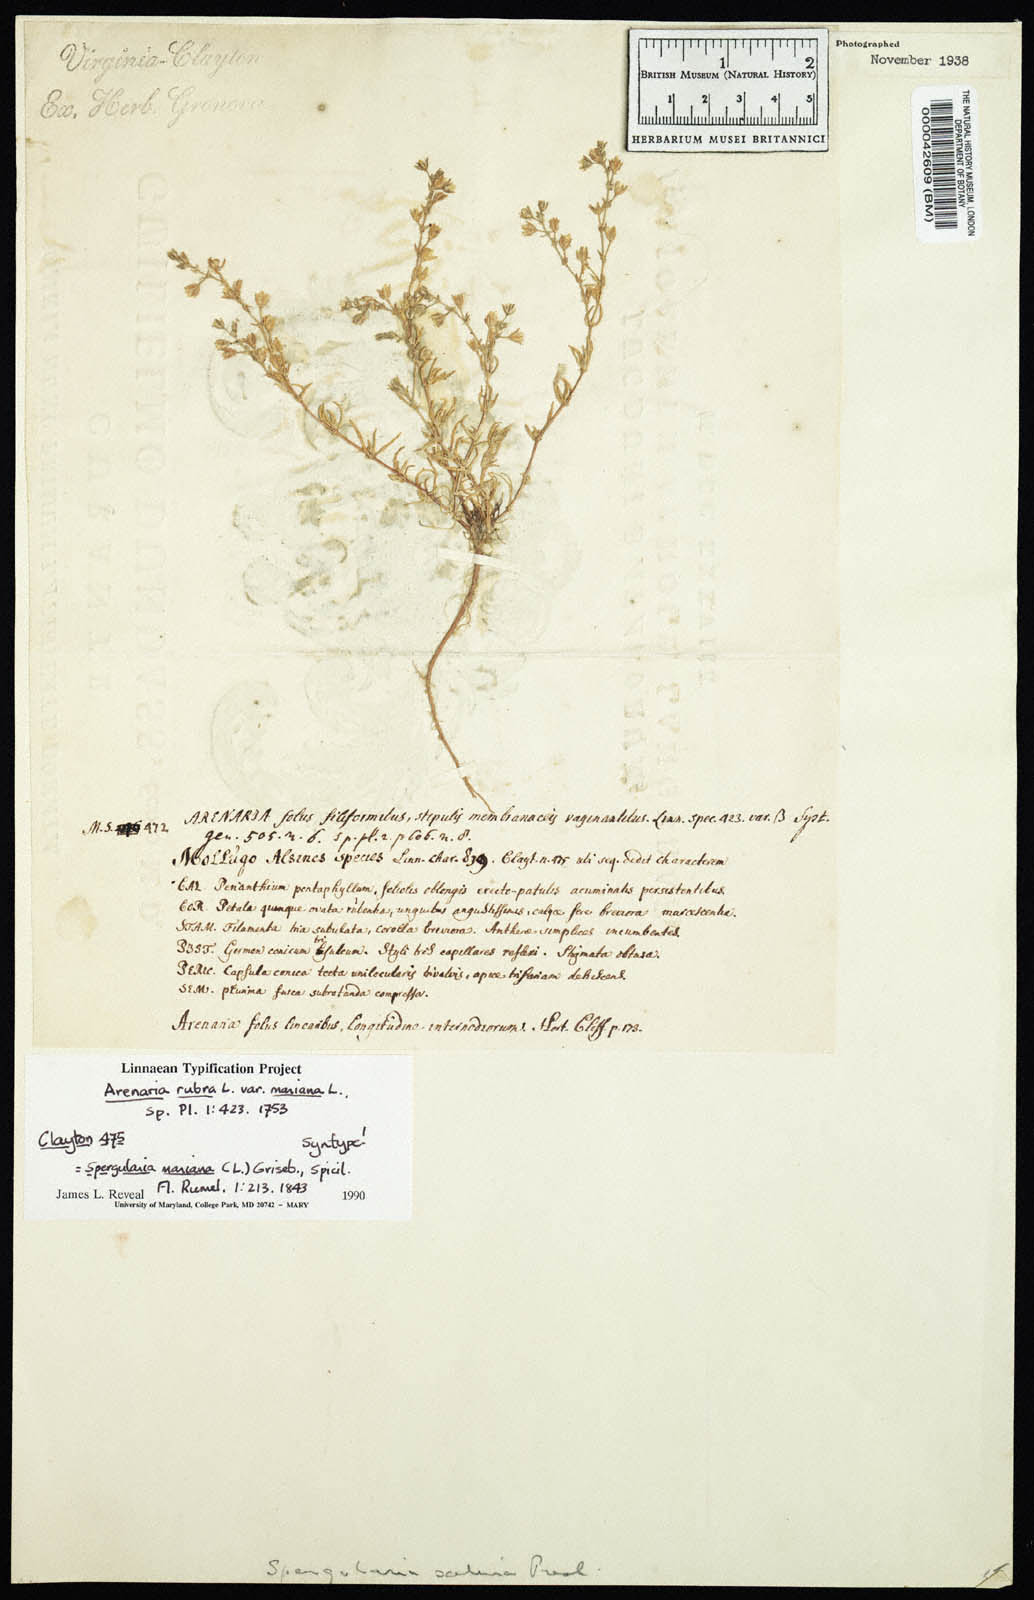 Virginia-Clayton
Ex. Herb. Gronov
1 2
BRITISH MUSEUM (NATURAL HISTORY)
1 2 3 4 5
HERBARIUM MUSEI BRITANNICI
Photographed
November 1938
THE NATURAL HISTORY MUSEUM, LONDON
DEPARTMENT OF BOTANY
000042609 (BM)
M.S. 472
ARENARIA foliis filiformibus, stipulis membranaceis vaginantibus. Linn. spec. 423. var. β Syst.
gen. 505. n. 6. sp. pl. 2. p 606. n. 8.
Mollugo Alsines species Linn. char. 879. Clayt. n. 475 ubi seq. dedit characterem
CAL. Perianthium pentaphyllum, foliolis oblongis erecto-patulis acuminatis persistentibus
COR. Petala quinque ovata rubentia, unguibus angustissimis, calyce fere breviora marcescentia.
STAM. Filamenta tria subulata, corolla breviora. Antherae simplices incumbentes.
PIST. Germen conicum trisulcum. Styli tres capillares reflexi. Stigmata obtusa.
PERIC. Capsula conica tecta unilocularis trivalvis, apice trifariam dehiscens.
SEM. plurima fusca subrotunda compressa.
Arenaria foliis linearibus, longitudine internodiorum. Hort. Cliff. p. 173.
Linnaean Typification Project
Arenaria rubra L. var. mariana L.,
Sp. Pl. 1:423. 1753
Clayton 475 Syntype!
= Spergularia mariana (L.) Griseb., Spicil.
Fl. Rumel. 1:213. 1843
James L. Reveal 1990
University of Maryland, College Park, MD 20742 – MARY
Spergularia salina Presl.